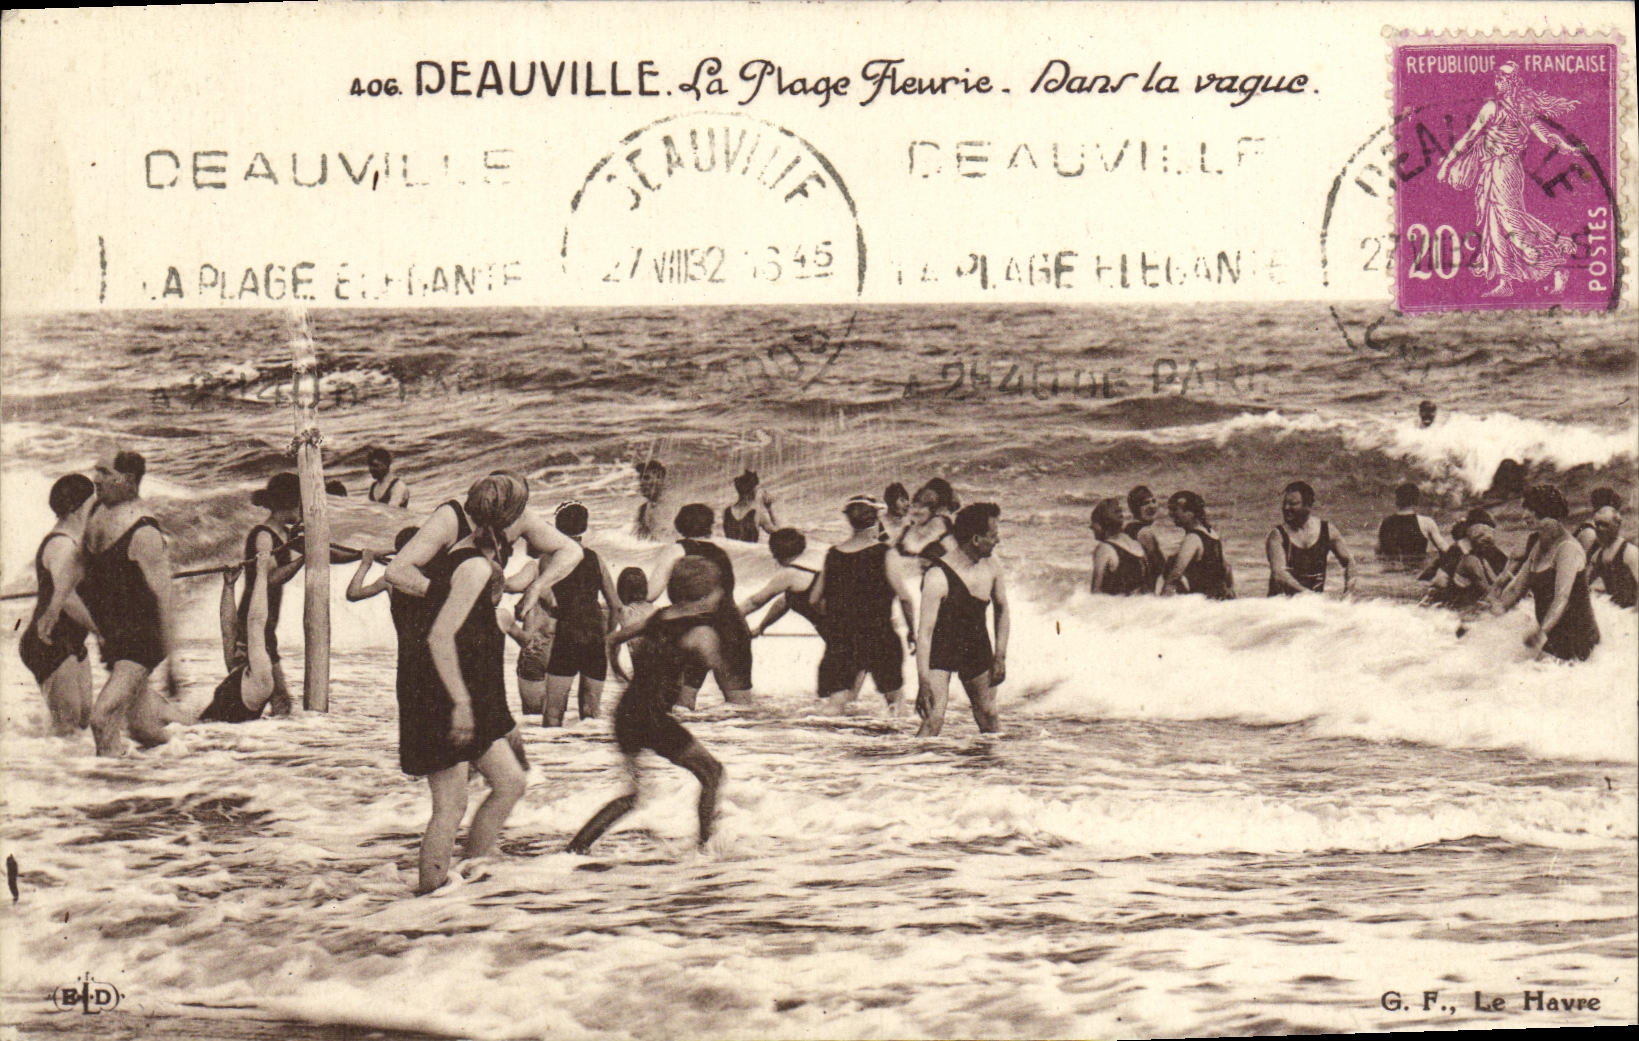 406. DEAUVILLE. La Plage Fleurie. Dans la vague.
REPUBLIQUE FRANÇAISE
20c
POSTES
DEAUVILLE
LA PLAGE ELEGANTE
A 2H40 DE PARIS
DEAUVILLE
27 VIII 32 16 45
DEAUVILLE
LA PLAGE ELEGANTE
A 2H40 DE PARIS
DEAUVILLE
ELD
G. F., Le Havre